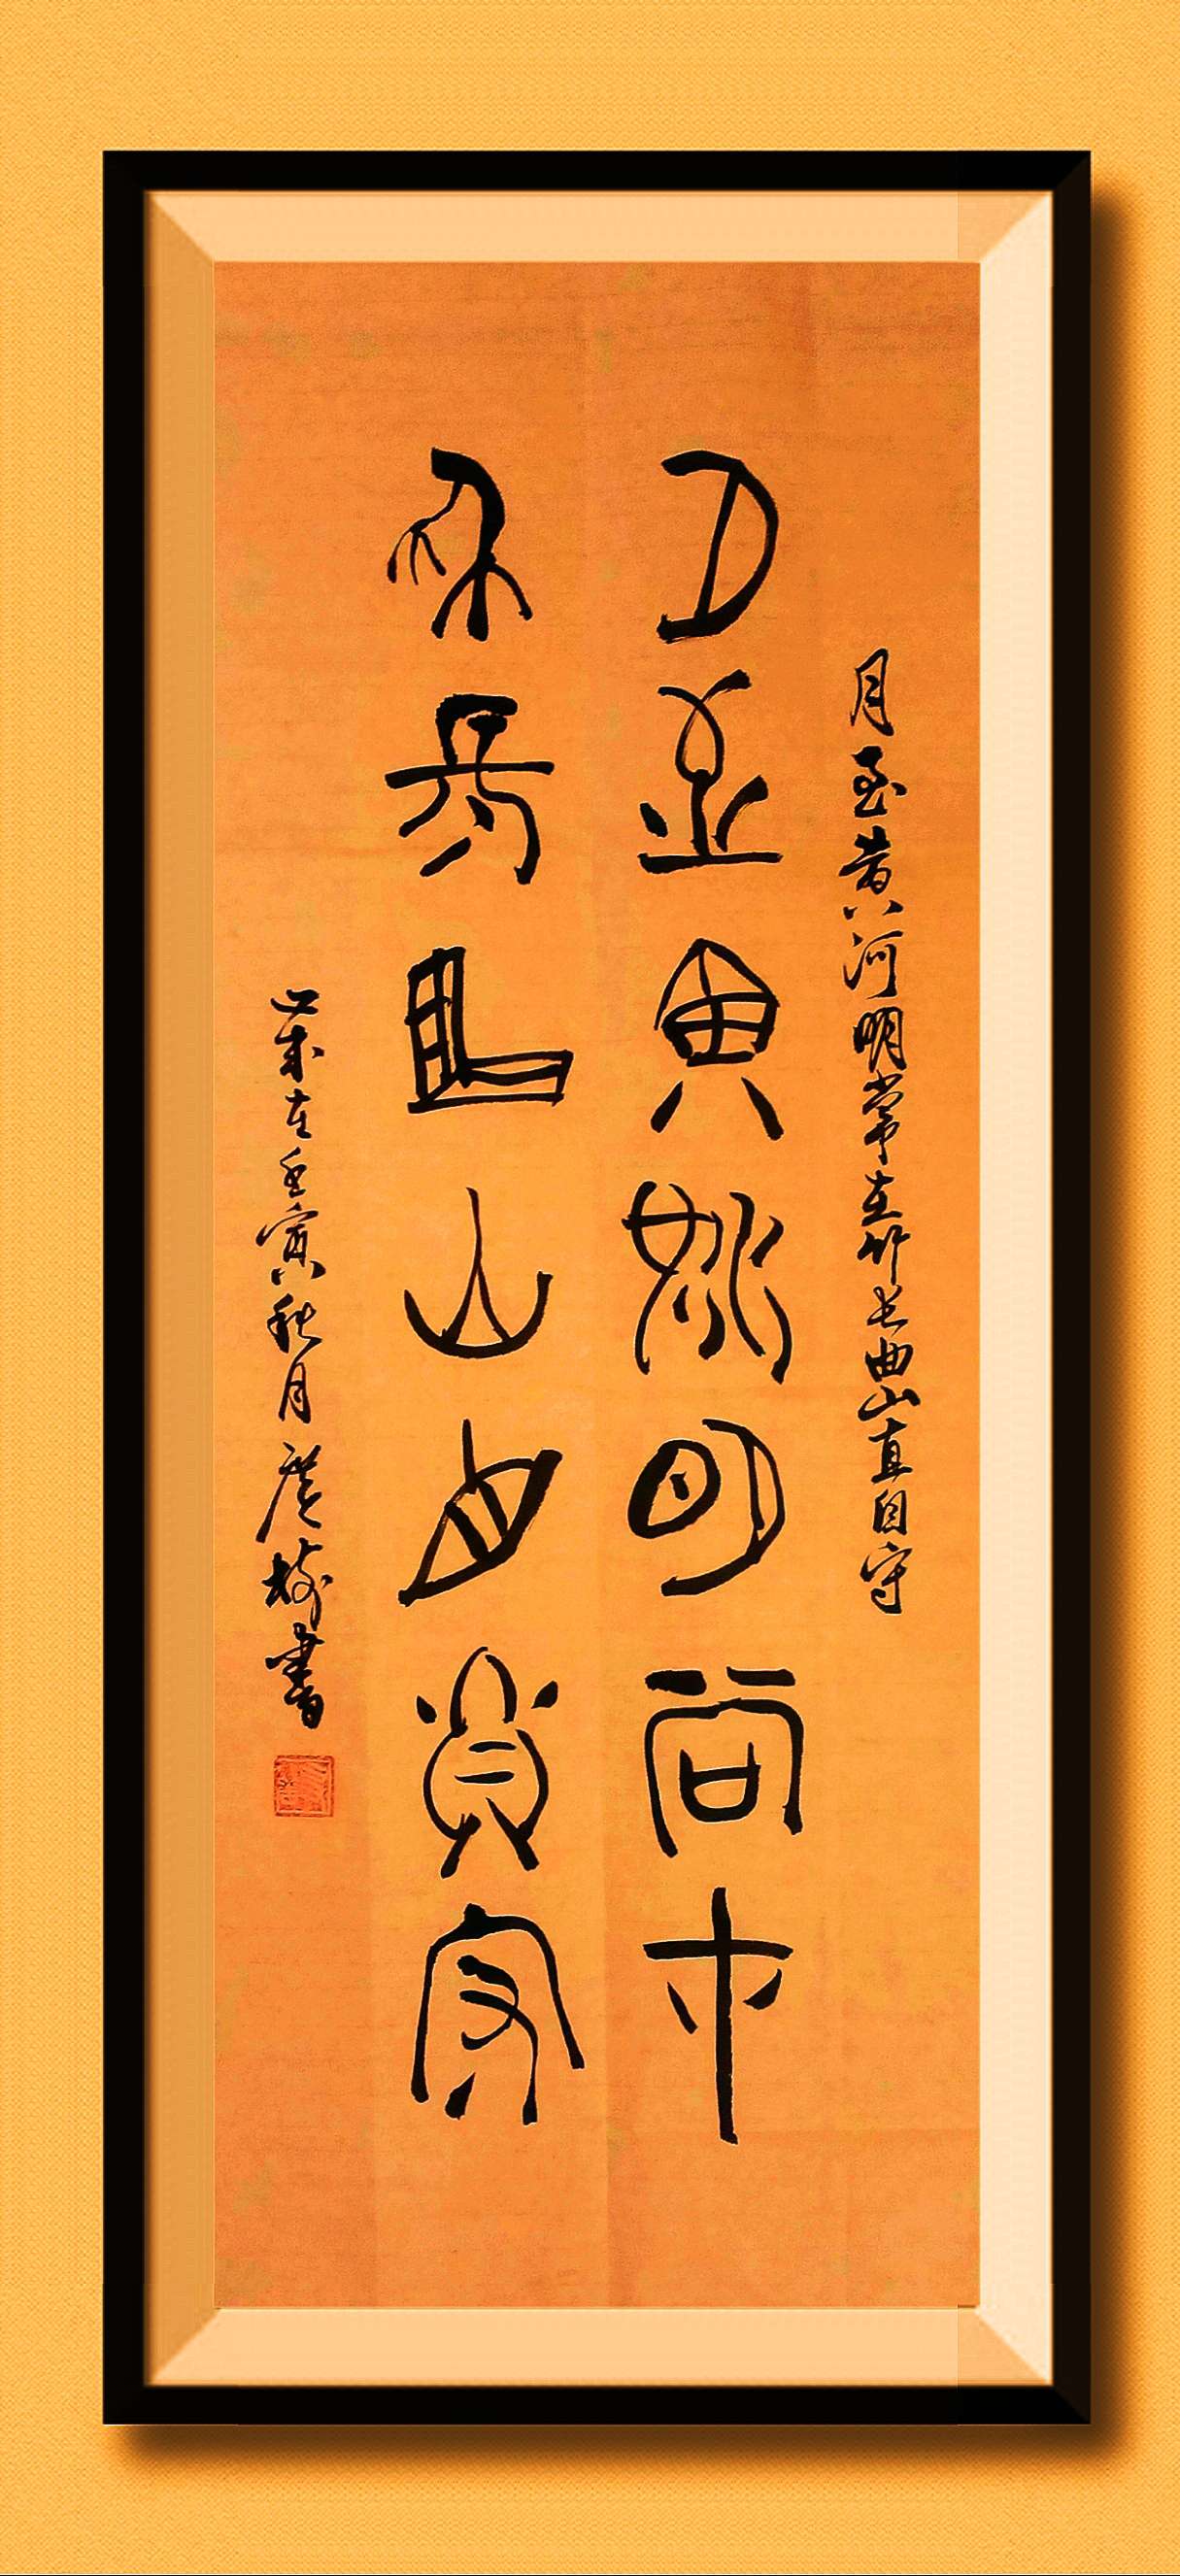 月至黄河明常在竹長曲山直自守
月至黄河明常在
竹長曲山直自守
歲在壬寅秋月書